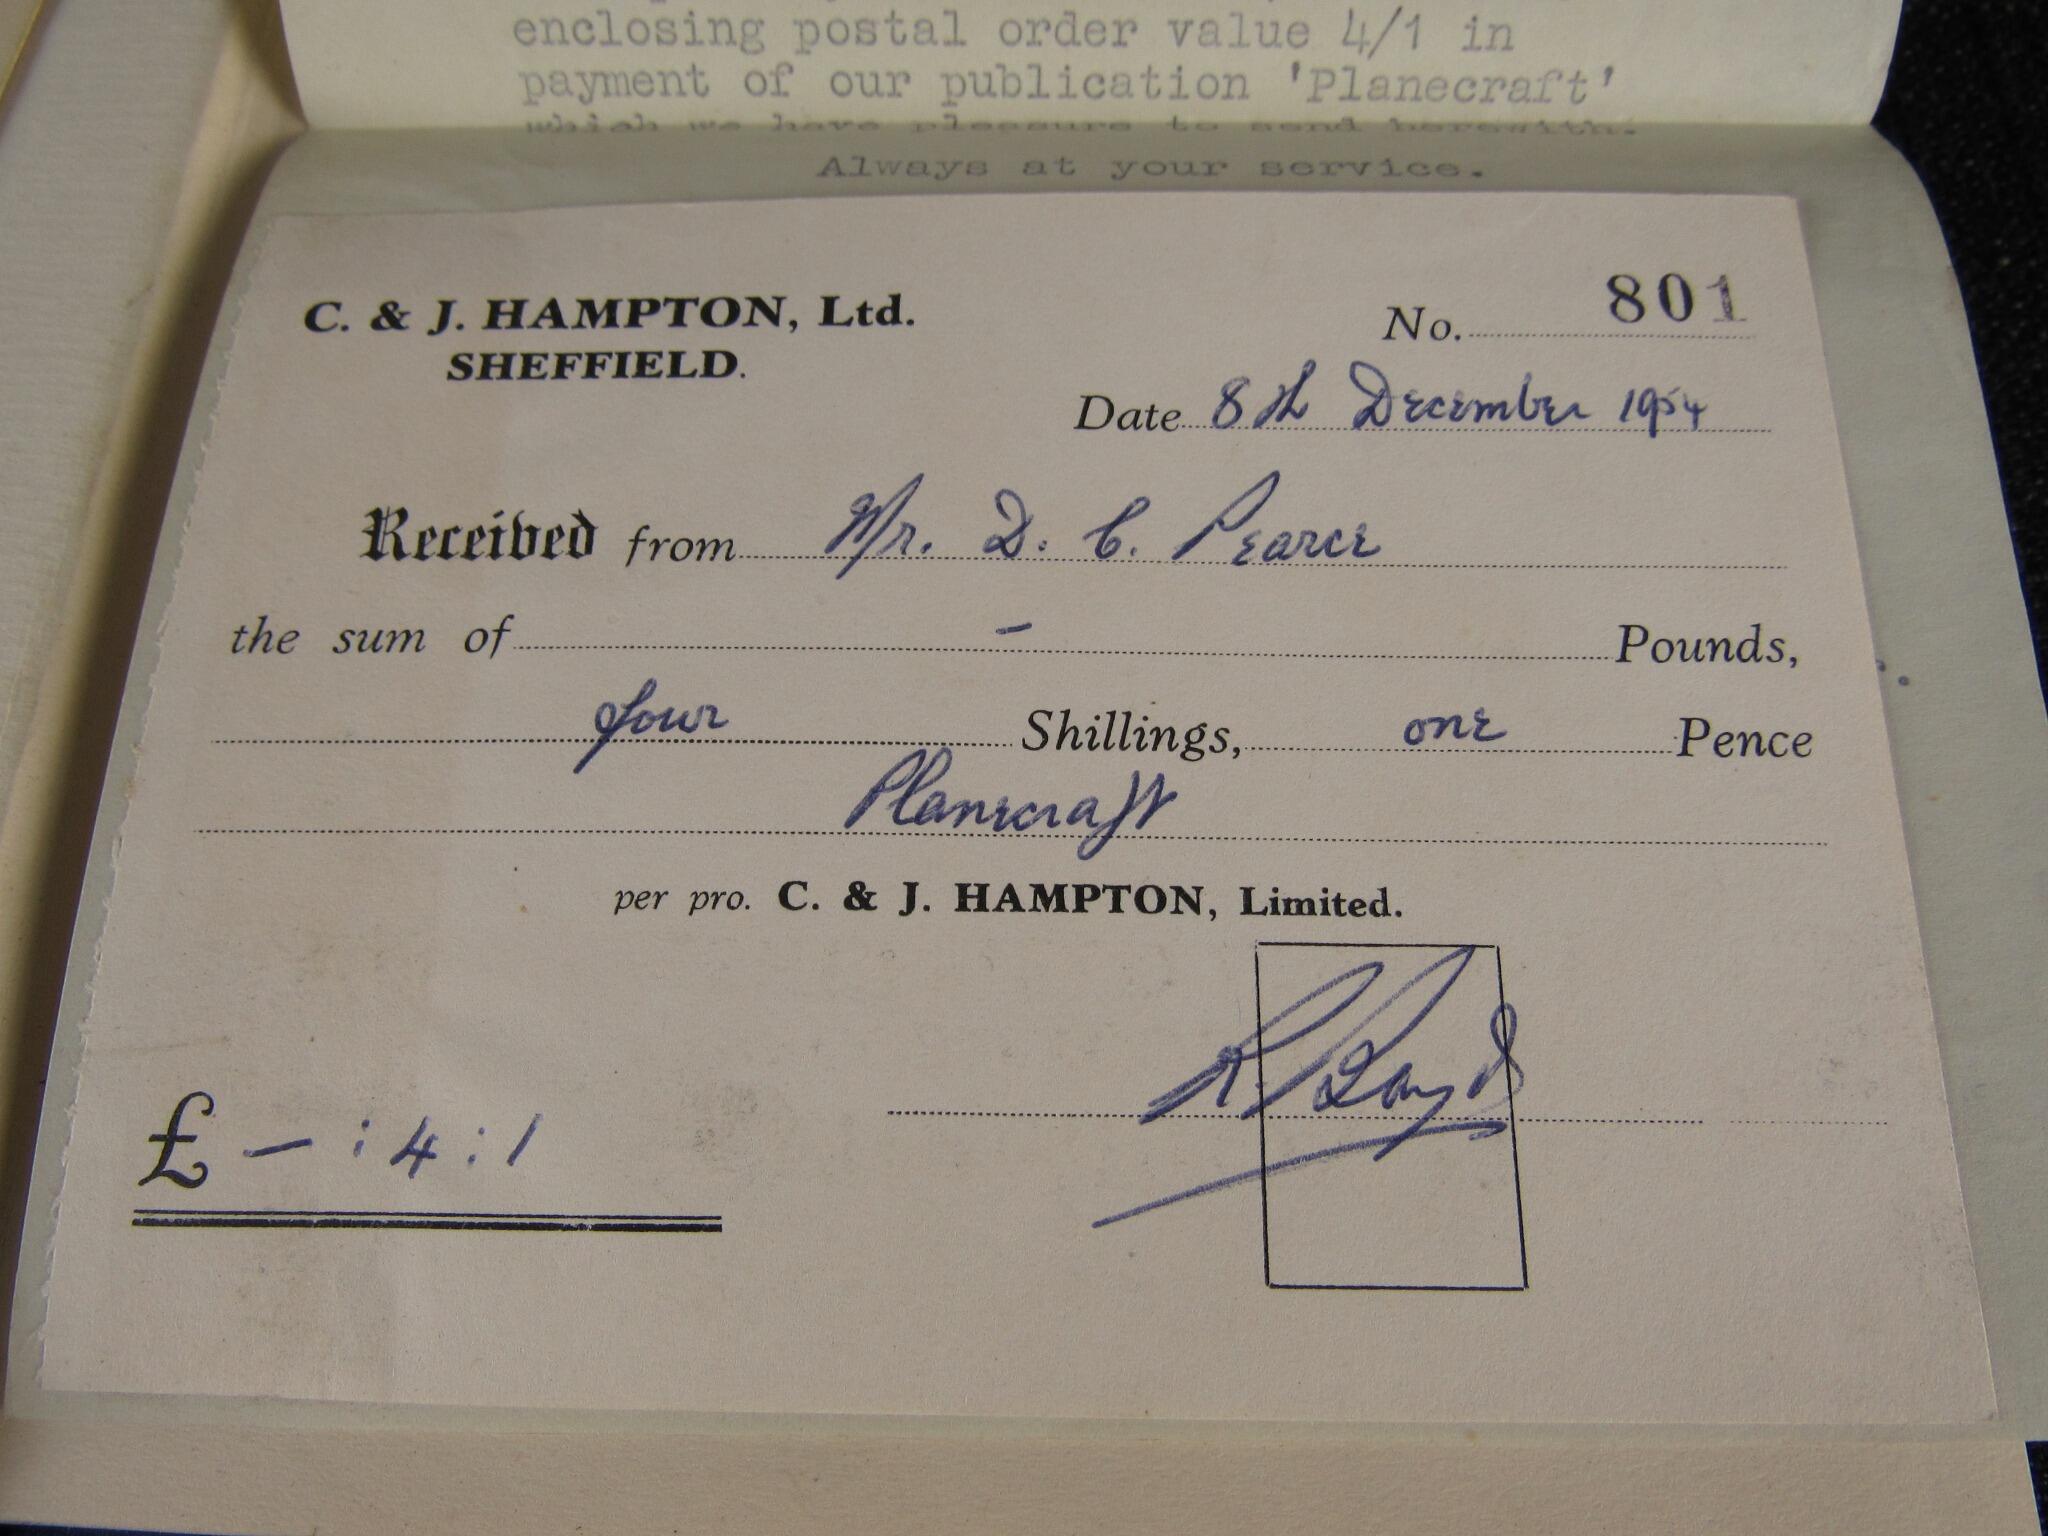 enclosing postal order value 4/1 in
payment of our publication 'Planecraft'
which we have pleasure to send herewith.
Always at your service.
C. & J. HAMPTON, Ltd.
SHEFFIELD.
No. 801
Date 8th December 1954
Received from Mr. D. C. Pearce
the sum of - Pounds,
four Shillings, one Pence
Planecraft
per pro. C. & J. HAMPTON, Limited.
R. Lloyd
£ - : 4 : 1